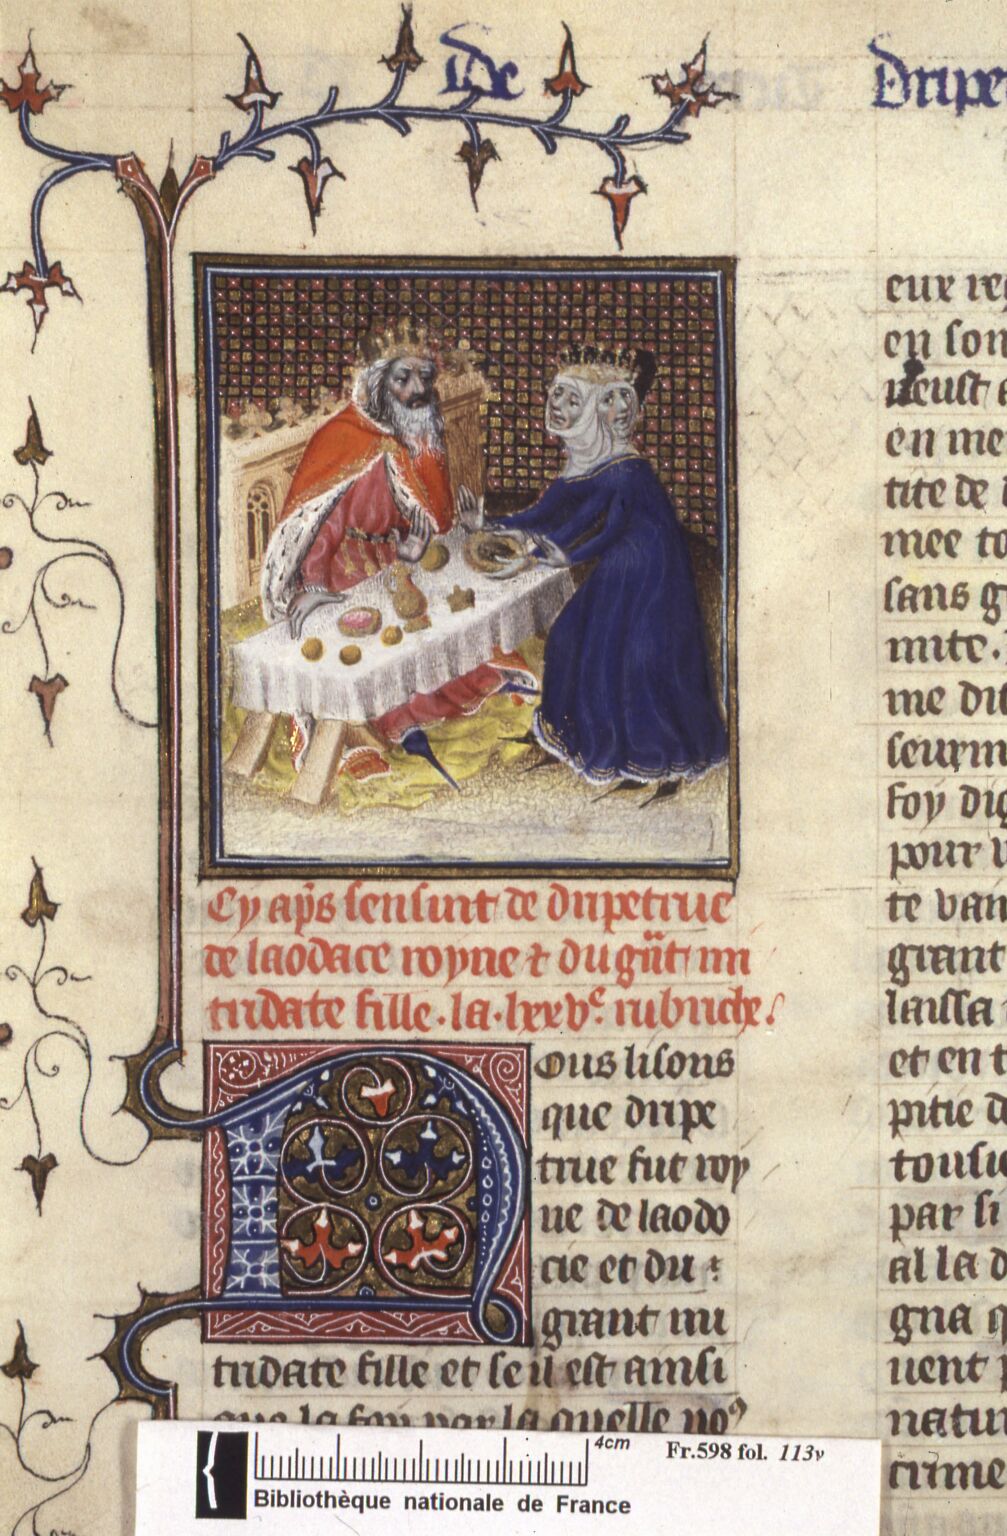 De Dripe
Cy apͥs sensuit de dripetrue
de laodace royne ⁊ du gͣnt mi
tridate fille. la. lxxvͤ. rubriche.
Nous lisons
que dripe
true fut roy
ne de laodo
cie et du
grant mi
tridate fille et se il est ainsi
que la foy par la quelle noꝯ
eux re
en son
neust
en me
tite de
mee to
sans g
mite.
me di
seurm
foy dig
pour v
te van
grant
laissa
et en t
pitie d
tousio
par si
al la d
gna q
uent p
natu
crime
4cm
Fr.598 fol. 113v
Bibliothèque nationale de France